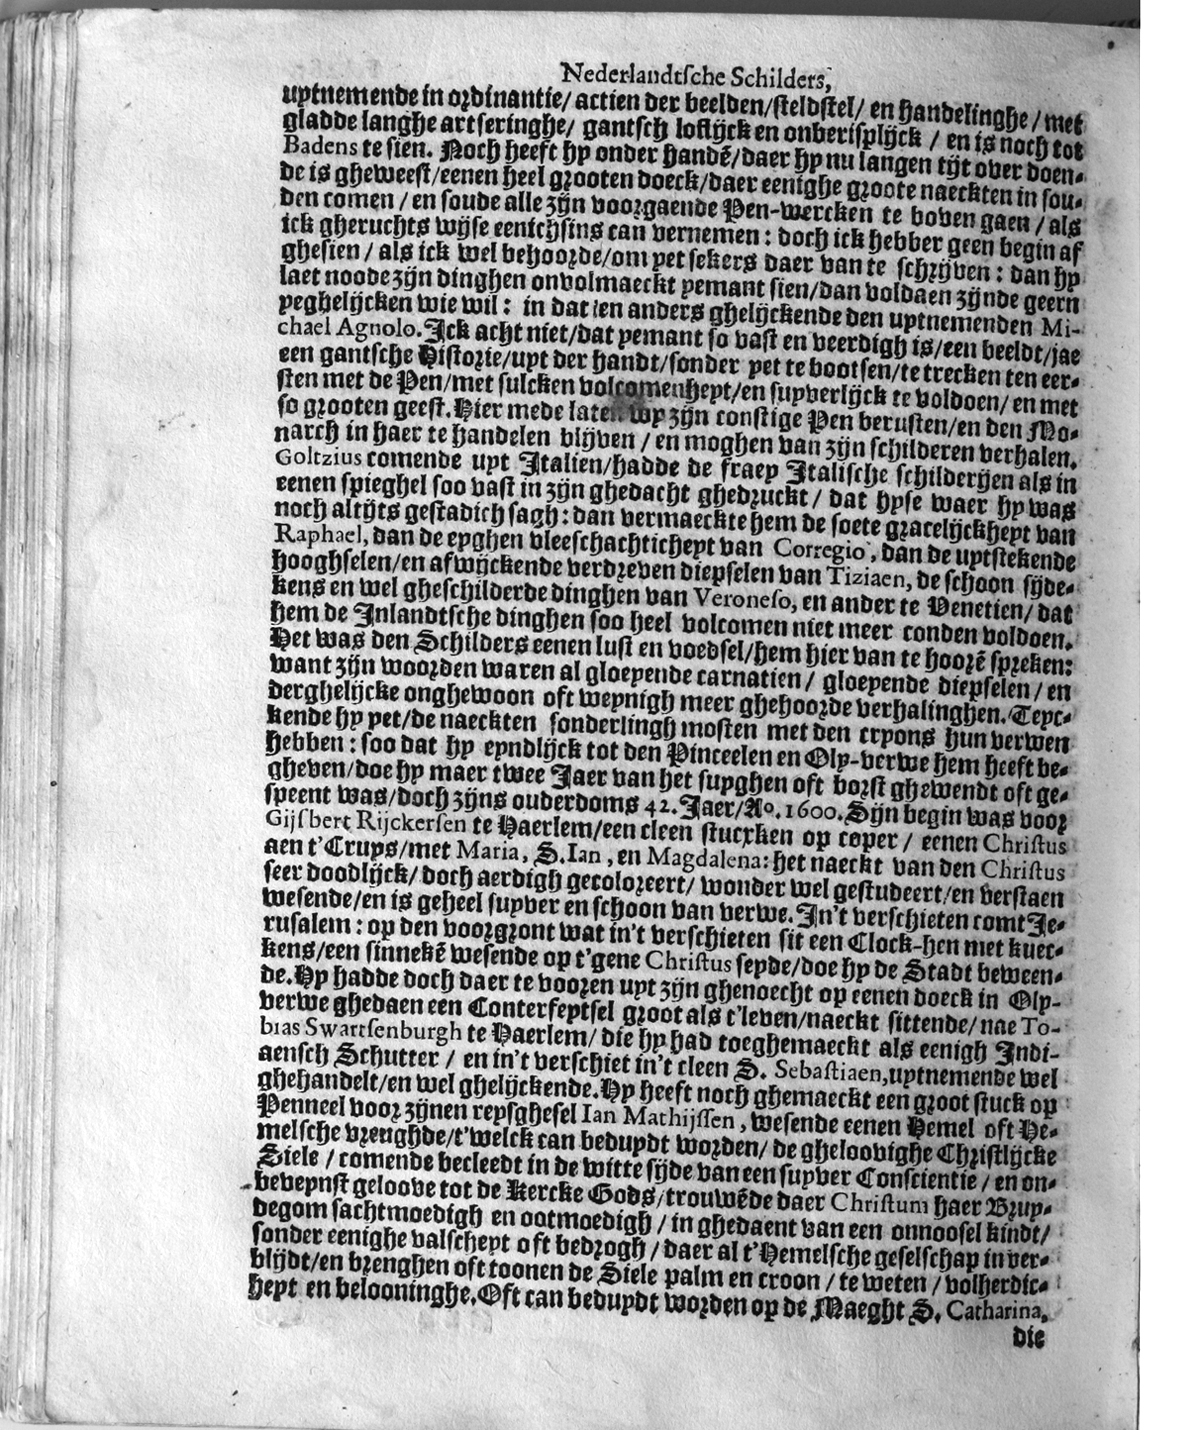 Nederlandtſche Schilders,
uytnemende in ordinantie/ actien der beelden/ſteldſtel/ en handelinghe/ met
gladde langhe artſeringhe/ gantſch loflijck en onberiſplijck / en is noch tot
Badens te ſien. Noch heeft hy onder handẽ/daer hy nu langen tijt over doen-
de is gheweeſt/eenen heel grooten doeck/daer eenighe groote naeckten in ſou-
den comen / en ſoude alle zijn voorgaende Pen-wercken te boven gaen / als
ick gheruchts wijſe eenichſins can vernemen : doch ick hebber geen begin af
gheſien / als ick wel behoorde/om yet ſekers daer van te ſchrijven : dan hy
laet noode zijn dinghen onvolmaeckt yemant ſien/dan voldaen zijnde geern
yeghelijcken wie wil : in dat ſen anders ghelijckende den uytnemenden Mi-
chael Agnolo. Ick acht niet/dat yemant ſo vaſt en veerdigh is/een beeldt/jae
een gantſche Hiſtorie/uyt der handt/ſonder yet te bootſen/te trecken ten eer-
ſten met de Pen/met ſulcken volcomenheyt/en ſuyverlijck te voldoen/ en met
ſo grooten geeſt. Hier mede laten wy zijn conſtige Pen beruſten/en den Mo-
narch in haer te handelen blijven / en moghen van zijn ſchilderen verhalen.
Goltzius comende uyt Italien/hadde de fraey Italiſche ſchilderijen als in
eenen ſpieghel ſoo vaſt in zijn ghedacht ghedruckt / dat hyſe waer hy was
noch altijts geſtadich ſagh : dan vermaeckte hem de ſoete gracelijckheyt van
Raphael, dan de eyghen vleeſchachticheyt van Corregio, dan de uytſtekende
hooghſelen/en afwijckende verdreven diepſelen van Tiziaen, de ſchoon ſijde-
kens en wel gheſchilderde dinghen van Veroneſo, en ander te Venetien/ dat
hem de Inlandtſche dinghen ſoo heel volcomen niet meer conden voldoen.
Het was den Schilders eenen luſt en voedſel/hem hier van te hoorẽ ſpreken:
want zijn woorden waren al gloeyende carnatien / gloeyende diepſelen / en
derghelijcke onghewoon oft weynigh meer ghehoorde verhalinghen. Teyc-
kende hy yet/de naeckten ſonderlingh moſten met den cryons hun verwen
hebben : ſoo dat hy eyndlijck tot den Pinceelen en Oly-verwe hem heeft be-
gheven/doe hy maer twee Jaer van het ſuyghen oft borſt ghewendt oft ge-
ſpeent was/doch zijns ouderdoms 42. Jaer/Aº. 1600. Sijn begin was voor
Gijſbert Rijckerſen te Haerlem/een cleen ſtucxken op coper / eenen Chriſtus
aen t'Cruys/met Maria, S. Ian, en Magdalena: het naeckt van den Chriſtus
ſeer doodlijck/ doch aerdigh gecoloreert/ wonder wel geſtudeert/en verſtaen
weſende/en is geheel ſuyver en ſchoon van verwe. In't verſchieten comt Je-
ruſalem : op den voorgront wat in't verſchieten ſit een Clock-hen met kuec-
kens/een ſinnekẽ weſende op t'gene Chriſtus ſeyde/doe hy de Stadt beween-
de. Hy hadde doch daer te vooren uyt zijn ghenoecht op eenen doeck in Oly-
verwe ghedaen een Conterfeytſel groot als t'leven/naeckt ſittende/ nae To-
bias Swartſenburgh te Haerlem/ die hy had toeghemaeckt als eenigh Indi-
aenſch Schutter / en in't verſchiet in't cleen S. Sebaſtiaen,uytnemende wel
ghehandelt/en wel ghelijckende. Hy heeft noch ghemaeckt een groot ſtuck op
Penneel voor zijnen reyſgheſel Ian Mathijſſen, weſende eenen Hemel oft He-
melſche vrenghde/t'welck can beduydt worden/ de gheloovighe Chriſtlijcke
Siele / comende becleedt in de witte ſijde van een ſuyver Conſcientie / en on-
beveynſt geloove tot de Kercke Gods/trouwẽde daer Chriſtum haer Bruy-
degom ſachtmoedigh en ootmoedigh / in ghedaent van een onnooſel kindt/
ſonder eenighe valſcheyt oft bedrogh / daer al t'Hemelſche geſelſchap in ver-
blijdt/en vrenghen oft toonen de Siele palm en croon / te weten / volherdic-
heyt en belooninghe. Oft can beduydt worden op de Maeght S. Catharina,
die